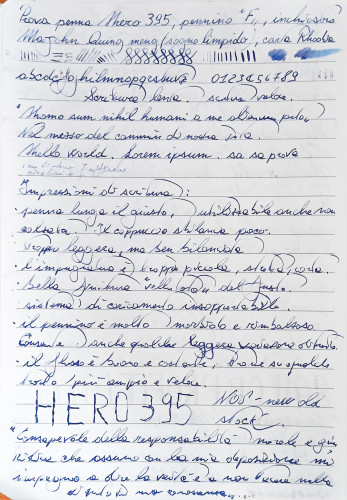 Prova penna Hero 395, pennino "F", inchiostro
"sogno limpido", carta Rhodia
abcdefghilmnopqrstuvz 0123456789
Scrittura lenta. scrittura veloce.
"Homo sum nihil humani a me alienum puto"
Nel mezzo del cammin di nostra vita.
Hello world. Lorem ipsum. sa sa prova
Impressioni di scrittura:
· penna lunga il giusto, utilizzabile anche non
calzata. Il cappuccio sbilancia poco.
· troppo leggera, ma ben bilanciata
· l'impugnatura è troppo piccola, corta.
· bella finitura
· sistema di caricamento insopportabile.
· il pennino è molto morbido e rimbalzoso.
Consente anche qualche leggera variazione di tratto.
· il flusso è buono e costante,
tratto più ampio e veloce.
HERO 395 NOS - new old
stock
"Consapevole della responsabilità morale e giu
ridica che assumo con la mia deposizione mi
impegno a dire la verità e a non nulla
di quanto mia conoscenza...